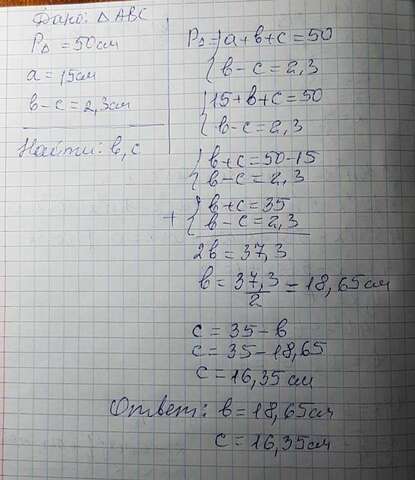 Дано: △ABC
P△ = 50см
a = 15см
b-c = 2,3см
Найти: b, c
P△ = a+b+c = 50
b-c = 2,3
15+b+c = 50
b-c = 2,3
b+c = 50-15
b-c = 2,3
b+c = 35
+ b-c = 2,3
2b = 37,3
b = 37,3/2 = 18,65см
c = 35-b
c = 35-18,65
c = 16,35см
Ответ: b = 18,65см
c = 16,35см